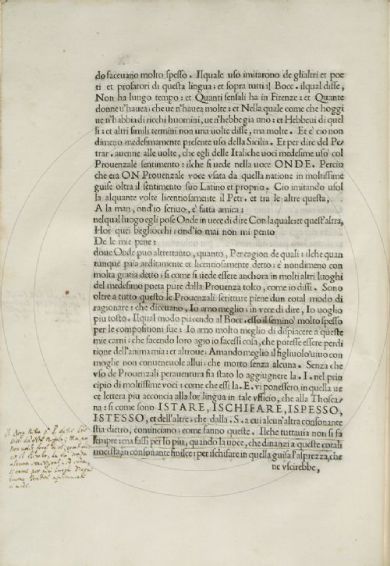 do faceuano molto spesso. Ilquale uso imitarono de glialtri et poe
ti et prosatori di questa lingua: et sopra tutti il Bocc. ilqual disse,
Non ha lungo tempo: et Quanti sensali ha in Firenze: et Quante
donne u'hauea; che ue n'hauea molte: et Nella quale come che hoggi
ue n'habbia di ricchi huomini, ue n'hebbe gia uno: et Hebbeui di quel
li: et altri simili termini non una uolte disse, ma molte. Et è cio non
dimeno medesimamente presente uso della Sicilia. Et per dire del Pe
trar. auenne alle uolte, che egli delle Italiche uoci medesime usò col
Prouenzale sentimento: ilche si uede nella uoce ONDE. Percio
che era ON Prouenzale uoce usata da quella natione in moltissime
guise oltra il sentimento suo Latino et proprio. Cio imitando usol
la alquante uolte licentiosamente il Petr. et tra le altre questa,
A la man, ond'io scriuo, è fatta amica:
nelqual luogo egli pose Onde in uece di dire Con laquale: et quest'altra,
Hor quei begliocchi: ond'io mai non mi pento
De le mie pene:
doue Onde puo altrettanto, quanto, Per cagion de quali: ilche quan
tunque paia arditamente et licentiosamente detto: è nondimeno con
molta gratia detto: si come si uede essere anchora in molti altri luoghi
del medesimo poeta pure dalla Prouenza tolto, come io dissi. Sono
oltre a tutto questo le Prouenzali scritture piene d'un cotal modo di
ragionare: che diceuano, Io amo meglio: in uece di dire, Io uoglio
piu tosto. Ilqual modo piacendo al Bocc. esso il seminò molto spesso
per le compositioni sue: Io amo molto meglio di dispiacere a queste
mie carni: che facendo loro agio io facessi cosa, che potesse essere perdi
tione dell'anima mia: et altroue: Amando meglio il figliuolo uiuo con
moglie non conueneuole allui: che morto senza alcuna. Senza che
uso de Prouenzali perauentura sia stato lo aggiugnere la. I. nel prin
cipio di moltissime uoci: come che essi la. E. ui ponessero, in quella ue
ce lettera piu acconcia alla lor lingua in tale ufficio, che alla Thosca/
na: si come sono ISTARE, ISCHIFARE, ISPESSO,
ISTESSO, et dell'altre: che dalla. S. a cui alcun'altra consonante
stia dietro, cominciano: come fanno queste. Ilche tuttauia non si fa
sempre: ma fassi per lo piu, quando la uoce, che dinanzi a queste cotali
uoci sta in consonante finisce: per ischifare in quella guisa l'asprezza, che
ne uscirebbe,